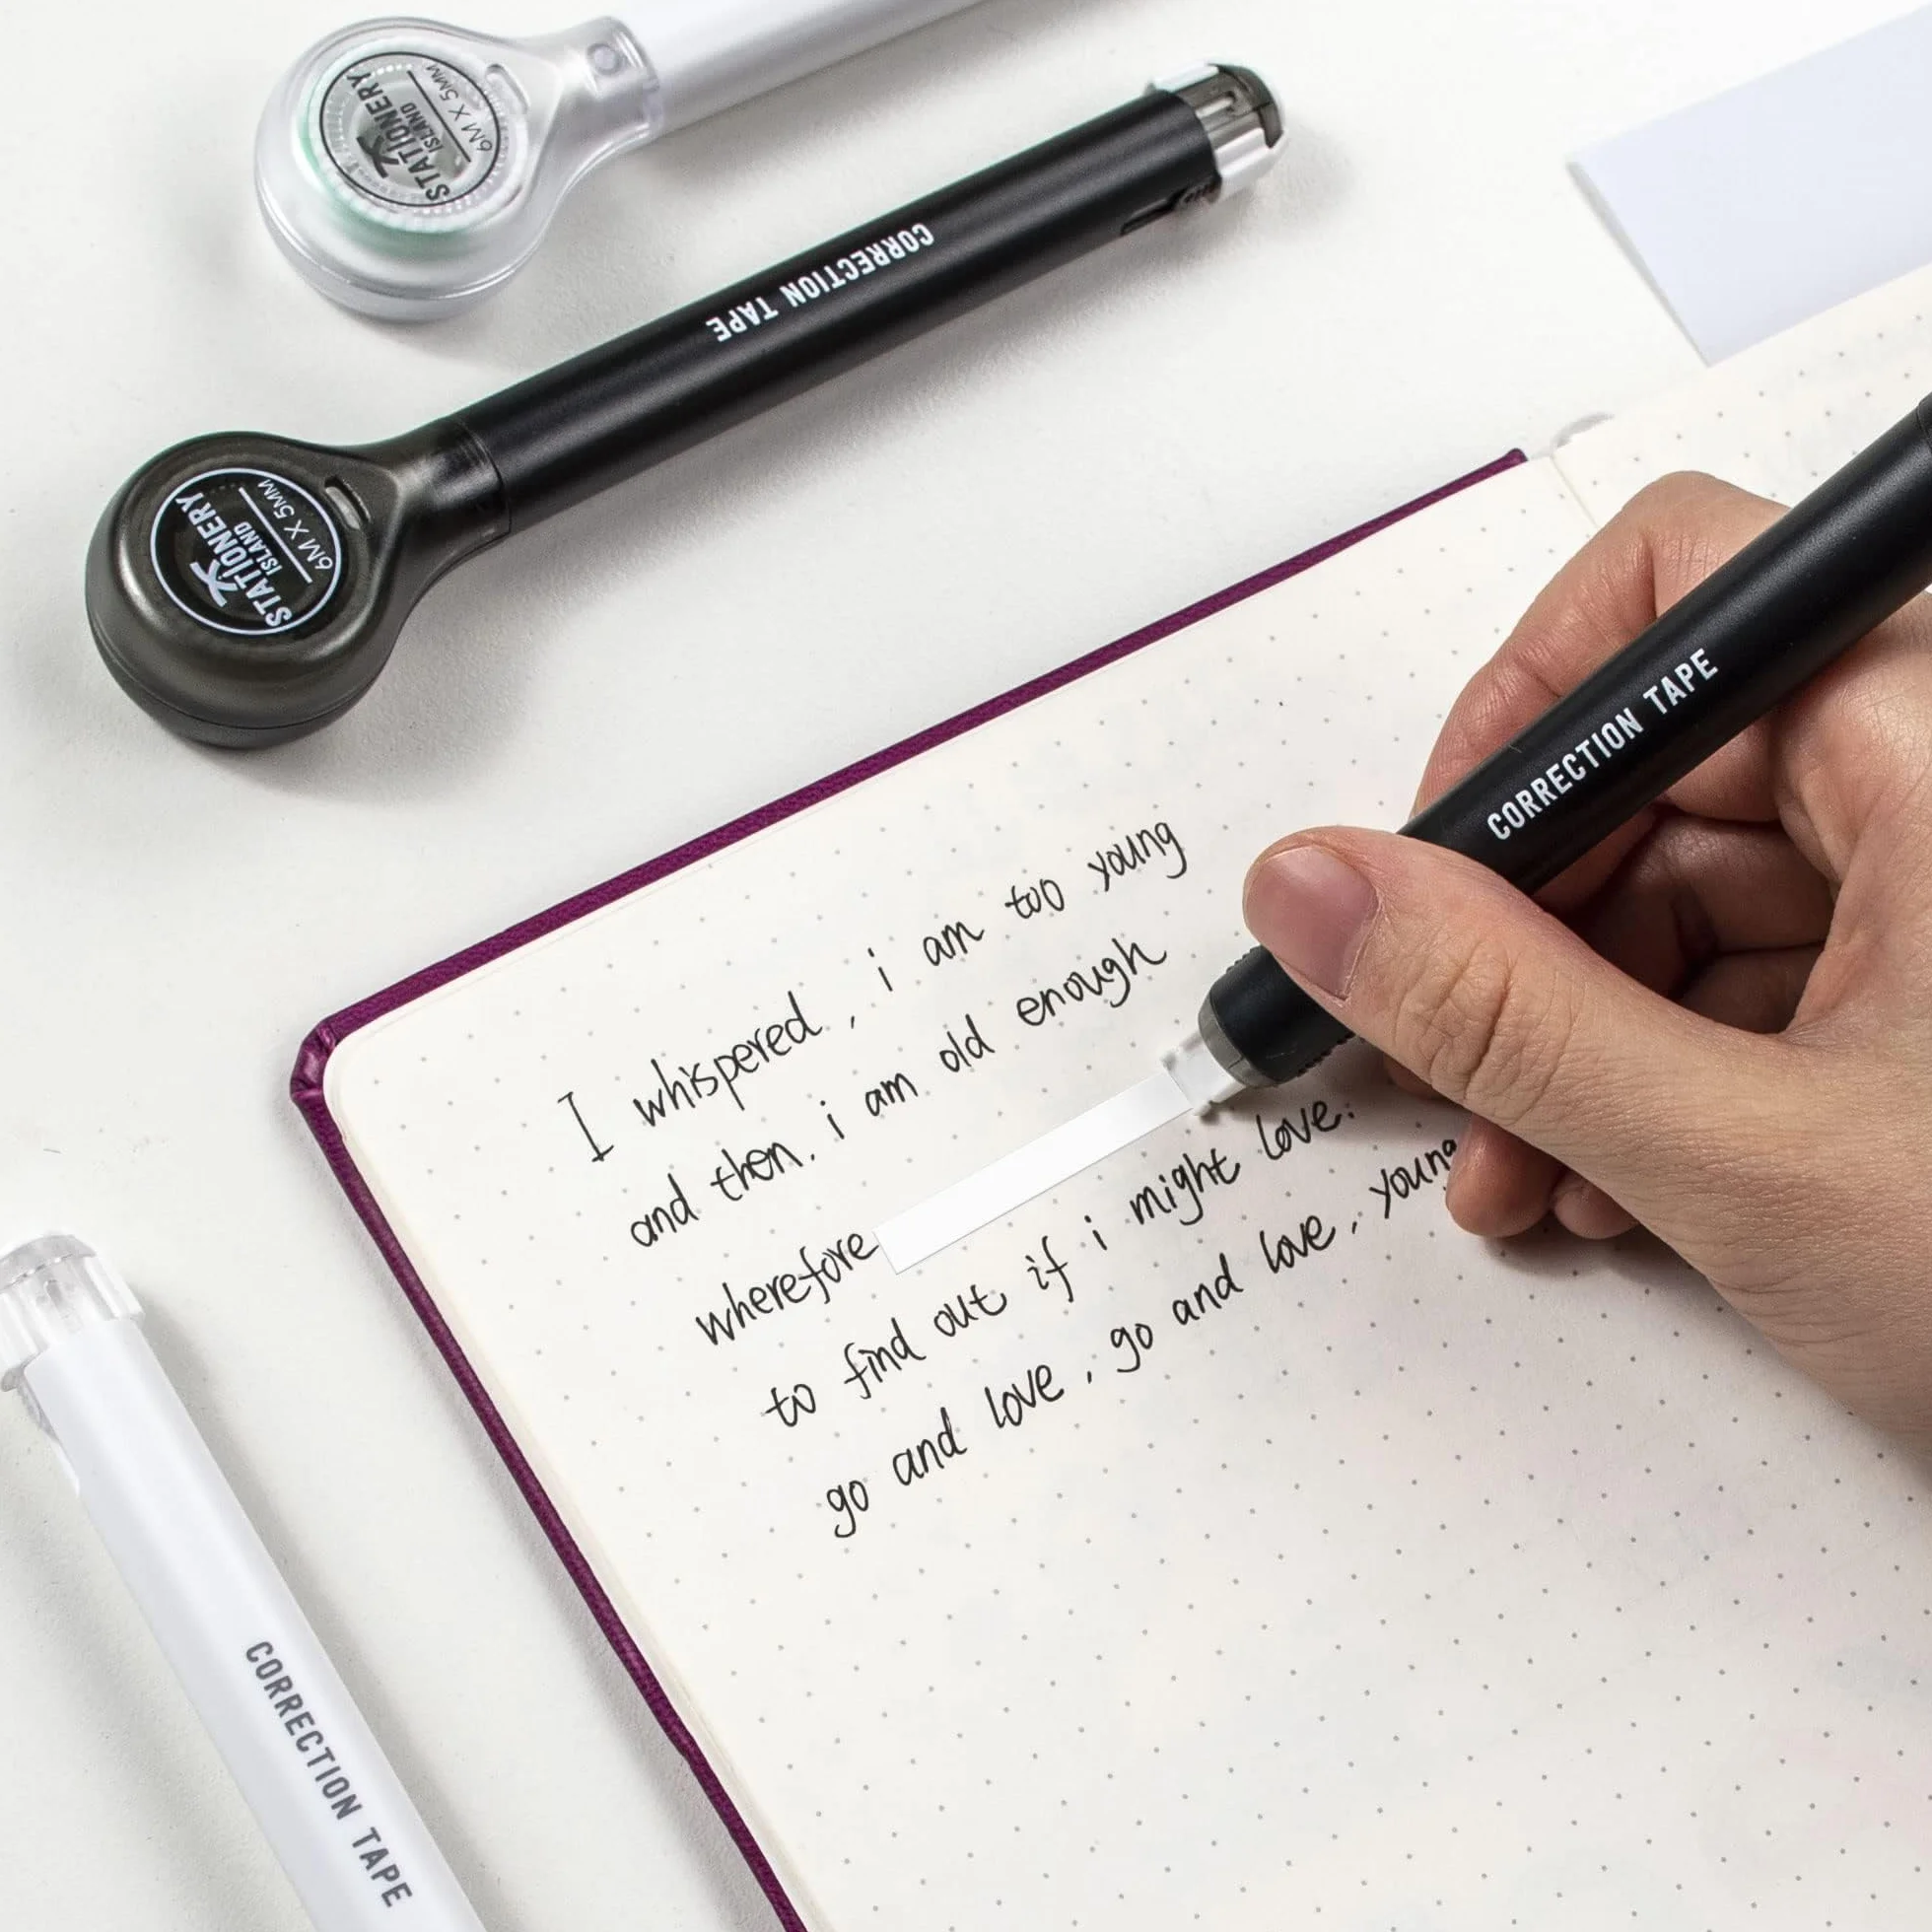 STATIONERY
ISLAND
6M X 5MM
CORRECTION TAPE
STATIONERY
ISLAND
6M X 5MM
CORRECTION TAPE
I whispered, i am too young
and then, i am old enough
wherefore
to find out if i might love.
go and love, go and love, young
CORRECTION TAPE